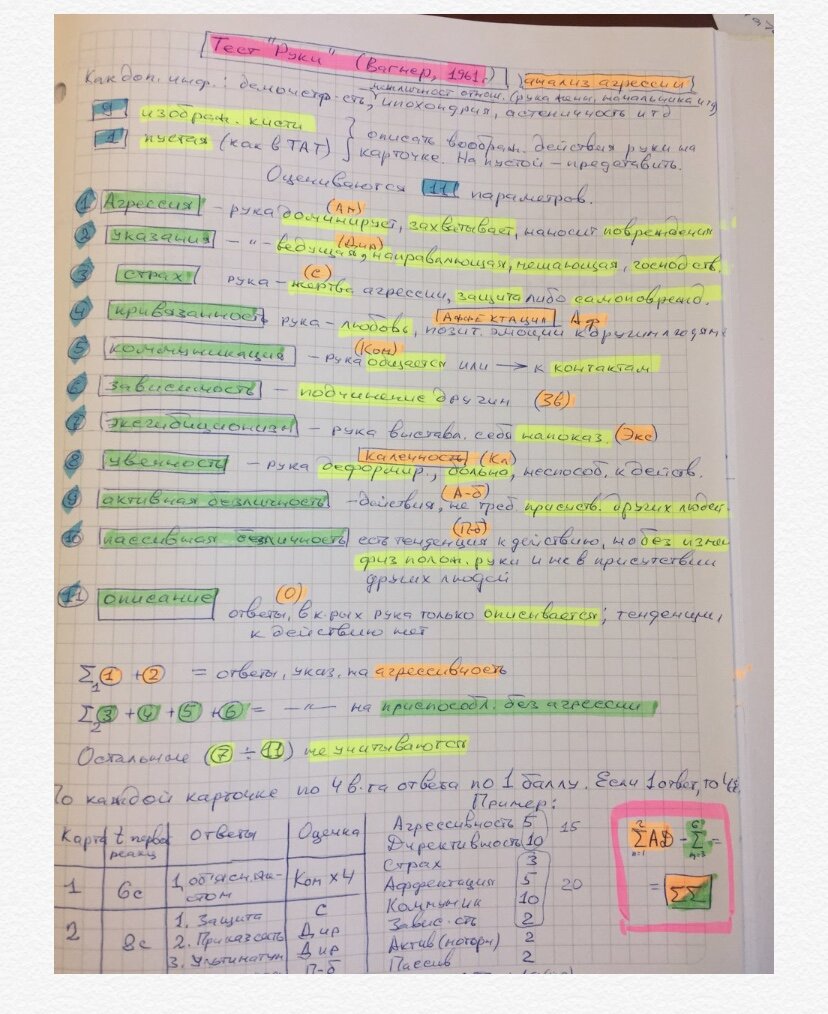 Тест "Руки" (Вагнер, 1961г.) анализ агрессии
Как доп. инф.: демонстр-сть, личност отнош. (рука жены, начальника итд)
ипохондрия, астеничность и т д
9 изображ. кисти
1 пустая (как в ТАТ)
описать воображ. действия руки на
карточке. На пустой – представить.
Оцениваются 11 параметров.
1 Агрессия – рука доминирует, захватывает, наносит повреждения
2 указания – " – (Дир) ведущая, направляющая, мешающая, господств.
3 страх (С) рука – жертва агрессии, защита либо самоповрежд.
4 привязанность (Аффектация) Аф рука – любовь, позит. эмоции к другим людям
5 коммуникация (Ком) – рука общается или → к контактам
6 зависимость – подчинение другим (Зв)
7 эксгибиционизм – рука выставл. себя напоказ. (Экс)
8 увечность – Калечность (Кл) рука деформир., больно, неспособ. к действ.
9 активная безличность (А-б) – действия, не треб. присутств. других людей
10 пассивная безличность (П-б) есть тенденция к действию, но без измен
физ полож. руки и не в присутствии
других людей
11 описание (О)
ответы, в к-рых рука только описывается; тенденции
к действию нет
Σ1 1 + 2 = ответы, указ. на агрессивность
Σ2 3 + 4 + 5 + 6 = –"– на приспособл. без агрессии
Остальные (7 ÷ 11) не учитываются
По каждой карточке по 4 в-та ответа по 1 баллу. Если 1 ответ, то 4б.
Пример:
Карта t первой реакц ответы Оценка
1 6с Ком х 4
2 8с
1. Защита С
2. Приказ Дир
3. Ультиматум Дир
П-б
Агрессивность 5
Директивность 10
15
Страх 3
Аффектация 5
Коммуник 10
Завис-сть 2
20
Актив (моторн) 2
Пассив 2
Σ АД – Σ =
= ΣΣ